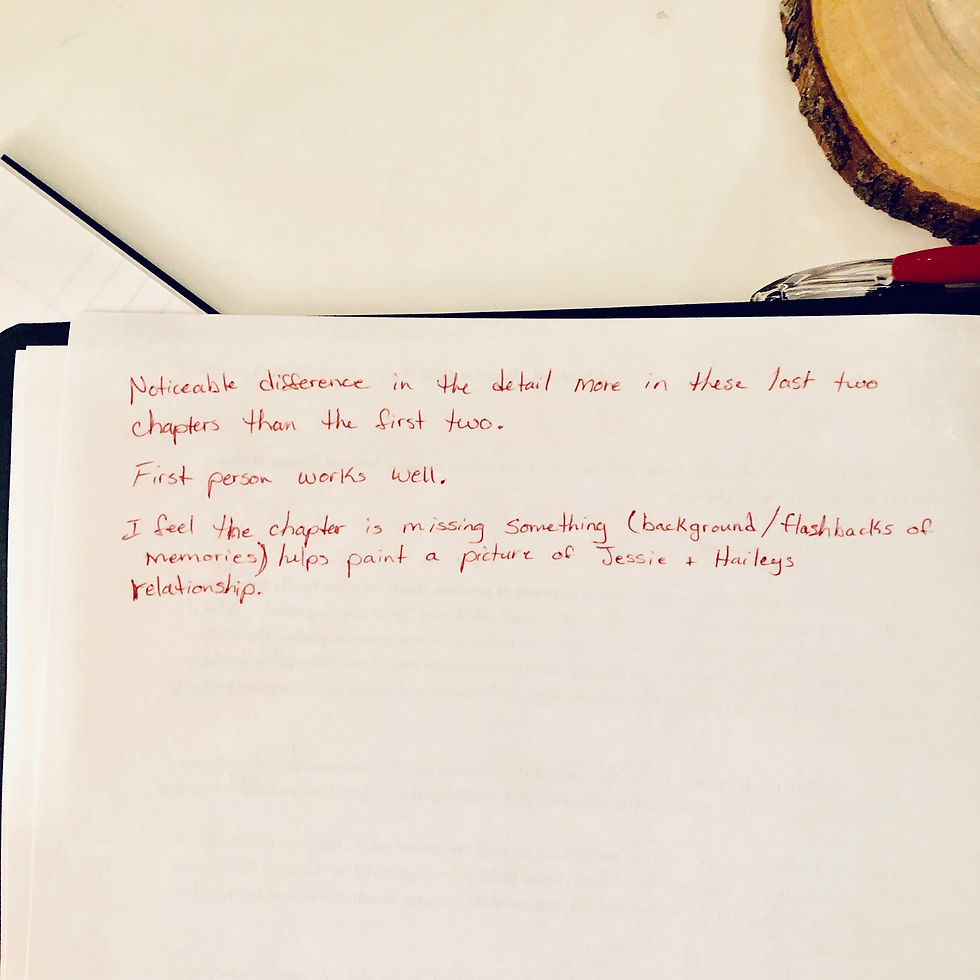 Noticeable difference in the detail more in these last two
chapters than the first two.
First person works well.
I feel the chapter is missing something (background/flashbacks of
memories) helps paint a picture of Jessie + Haileys
relationship.